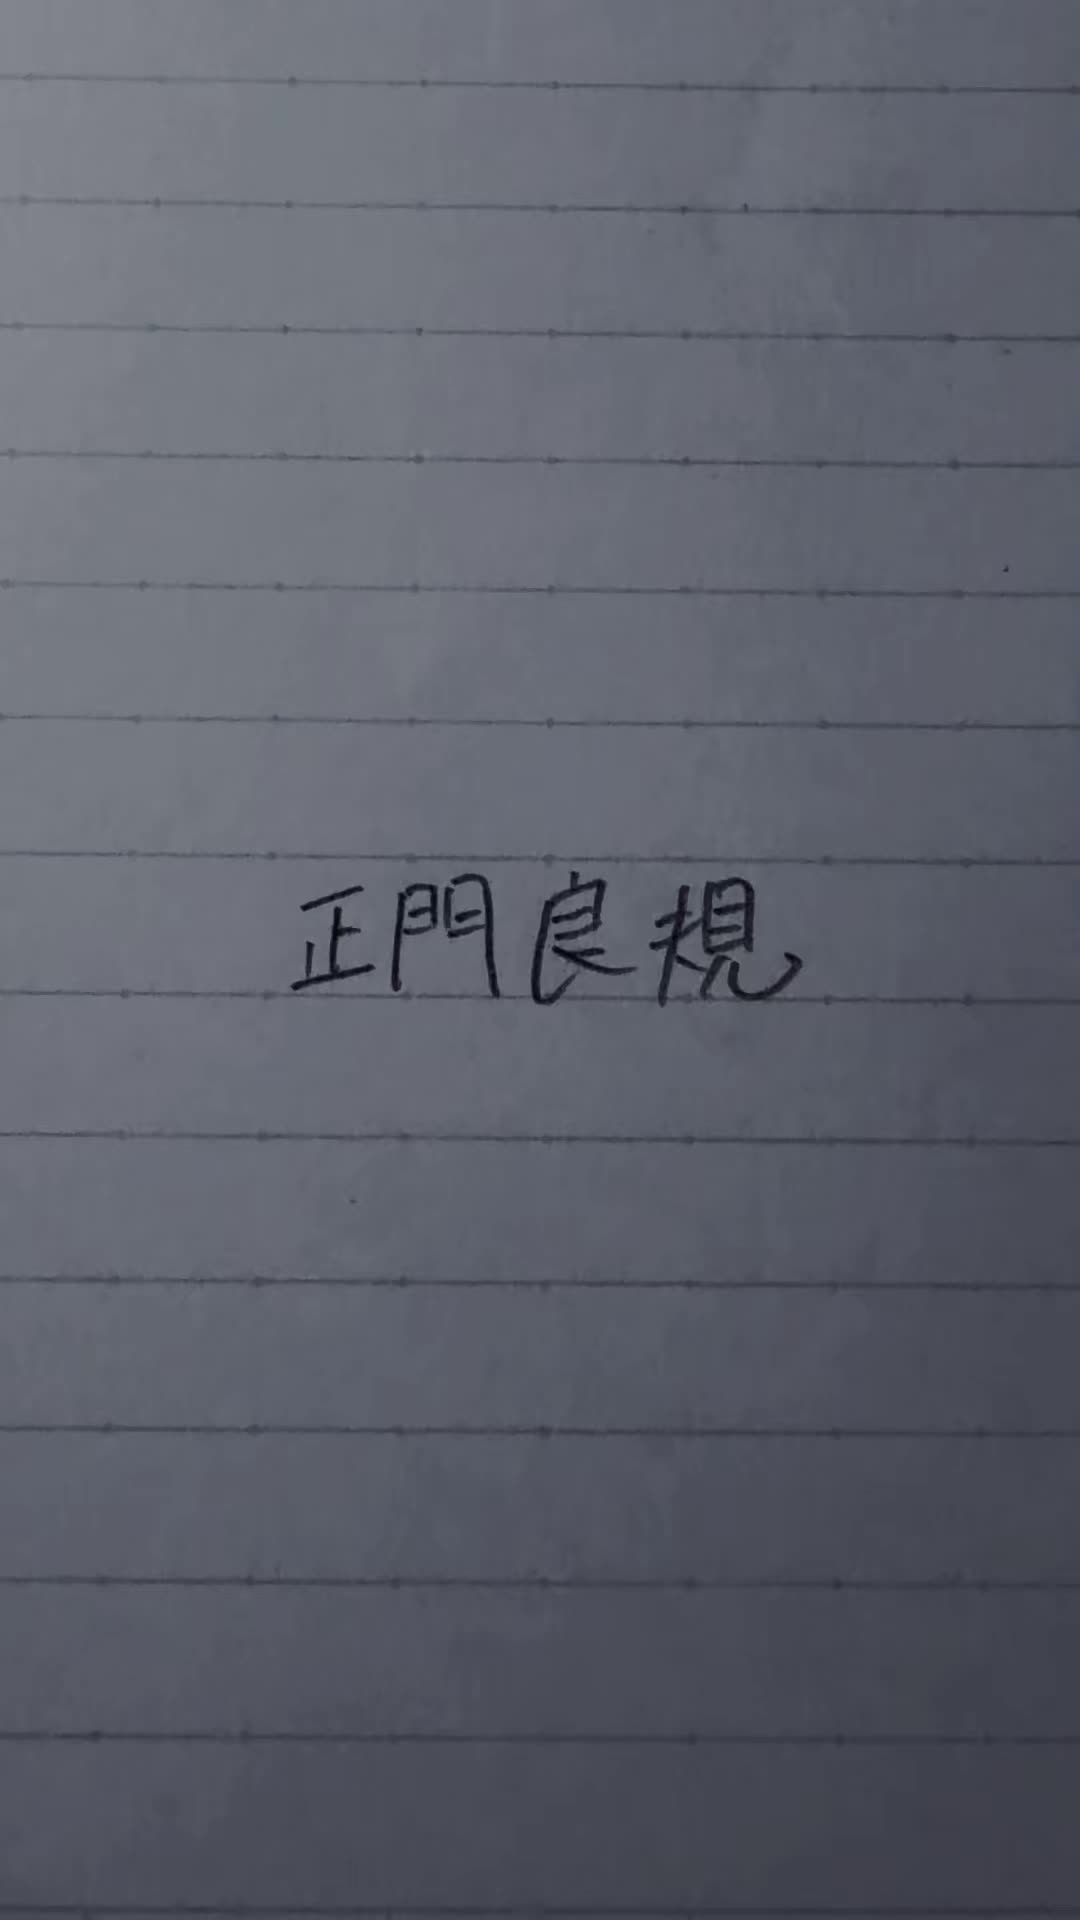 正門良規